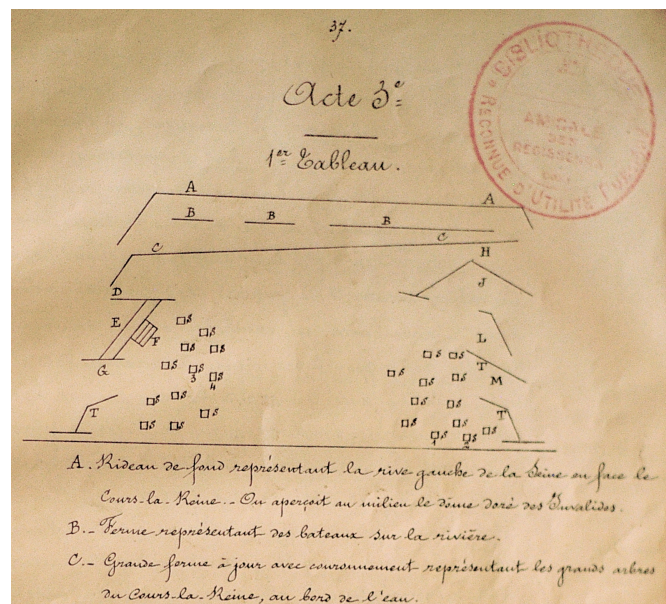 37.
BIBLIOTHÈQUE
AMICALE
DES
REGISSEURS
RECONNUE D'UTILITÉ PUB
Acte 3e
1er Tableau.
A A
B B B
C C
H
D J
E F S S
S S L
S S S S S T
G 3 4 S S S M
T S S S S S T
S S 1 2 S S
A. Rideau de fond représentant la rive gauche de la Seine en face le
Cours-la-Reine. - On aperçoit au milieu le dôme doré des Invalides.
B. - Ferme représentant des bateaux sur la rivière.
C. - Grande ferme à jour avec couronnement représentant les grands arbres
du Cours-la-Reine, au bord de l'eau.